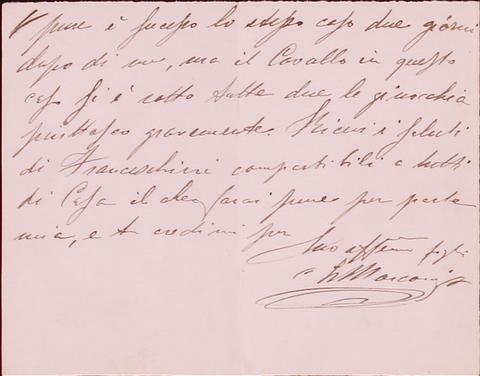 pure è sucesso lo stesso caso due giorni
dopo di me, ma il Cavallo in questo
caso si è rotto tutte due le ginocchia
piuttosto gravemente. Ricevi i saluti
di Franceschini compartibili a tutti
di Casa il che farai pure per parte
mia, e credimi per
Suo affmo figlio